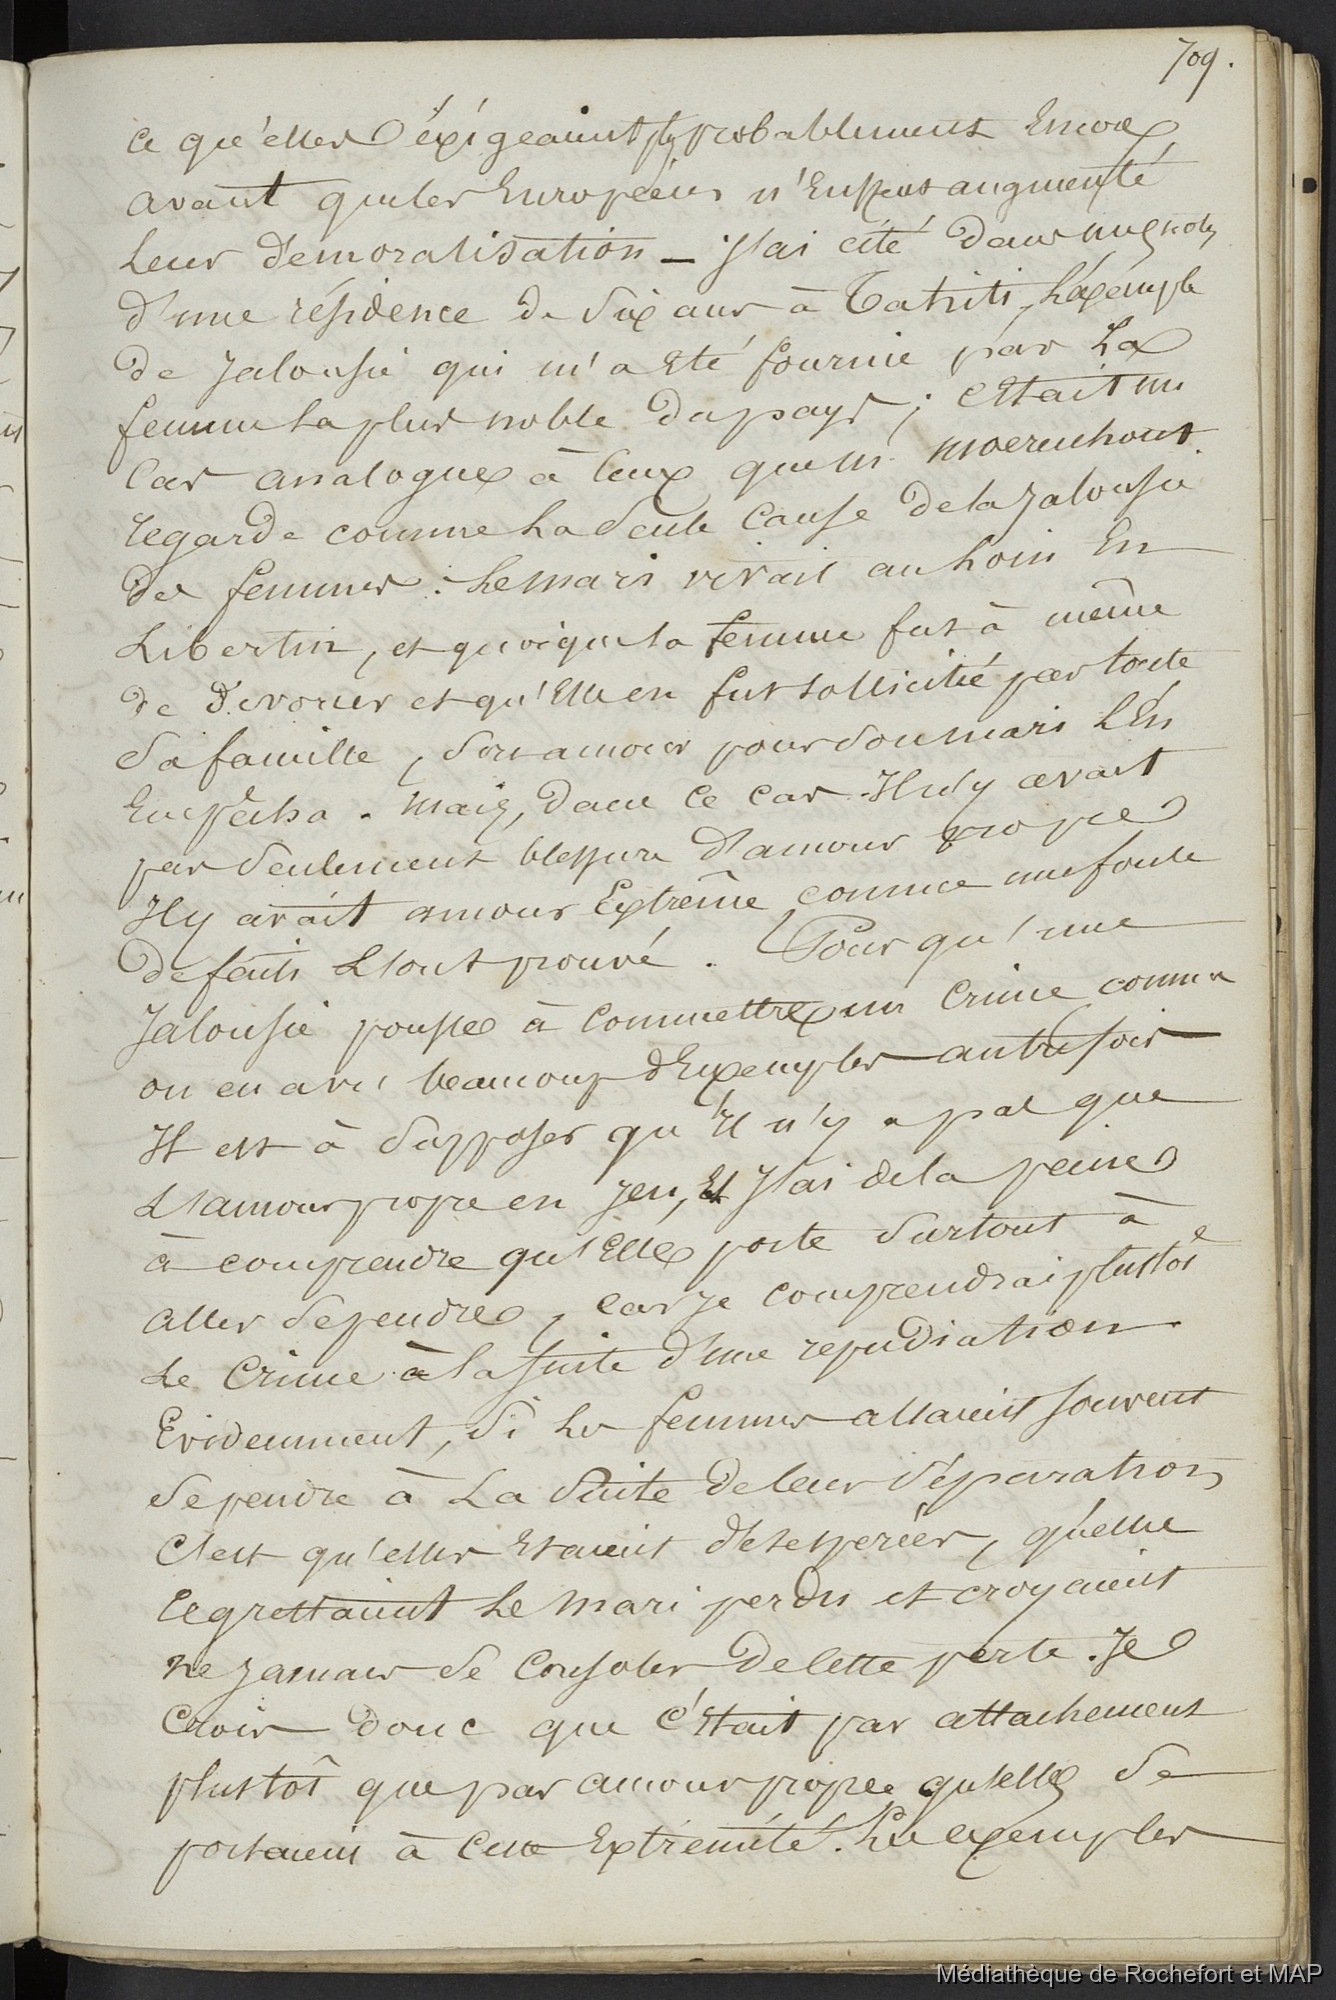 709.
ce qu'elles éxigeaient plus probablement Encore
avant que les Européens n'Eussent augmenté
leur démoralisation — J'ai cité dans mes notes
d'une résidence de Six ans à Tahiti, l'éxemple
de Jalousie qui m'a Eté fournie par La
femme la plus noble du pays ; c'Etait un
Cas analogue à Ceux que M. Moerenhout
regarde comme La Seule Cause de la Jalousie
des femmes : Le mari vivait au Loin En
Libertin, et quoique la femme fut à même
de divorcer et qu'Elle en fut sollicitée par toute
Sa famille, Son amour pour Son mari L'En
Empêcha. Mais, dans Ce cas Il n'y avait
pas Seulement blessure d'amour propre
Il y avait amour Extrême comme une foule
de faits L'ont prouvé. Pour qu'une
Jalousie pousse à Commettre un Crime comme
on en a vu beaucoup d'Exemples autrefois
Il est à Supposer qu'Il n'y a pas que
L'amour propre en jeu, Et J'ai de la peine
à comprendre qu'Elle porte Surtout à
aller Se pendre, Car Je comprendrai plustôt
Le Crime à la Suite d'une répudiation.
Evidemment, Si Les femmes allaient Souvent
Se pendre à La Suite de leur Séparation,
C'est qu'elles Etaient désespérées, qu'elles
regrettaient Le Mari perdu et croyaient
ne Jamais Se Consoler de Cette perte. Je
Crois donc que C'Etait par attachement
plustôt que par amour propre qu'elles Se
portaient à Cette Extrémité. Les exemples
Médiathèque de Rochefort et MAP